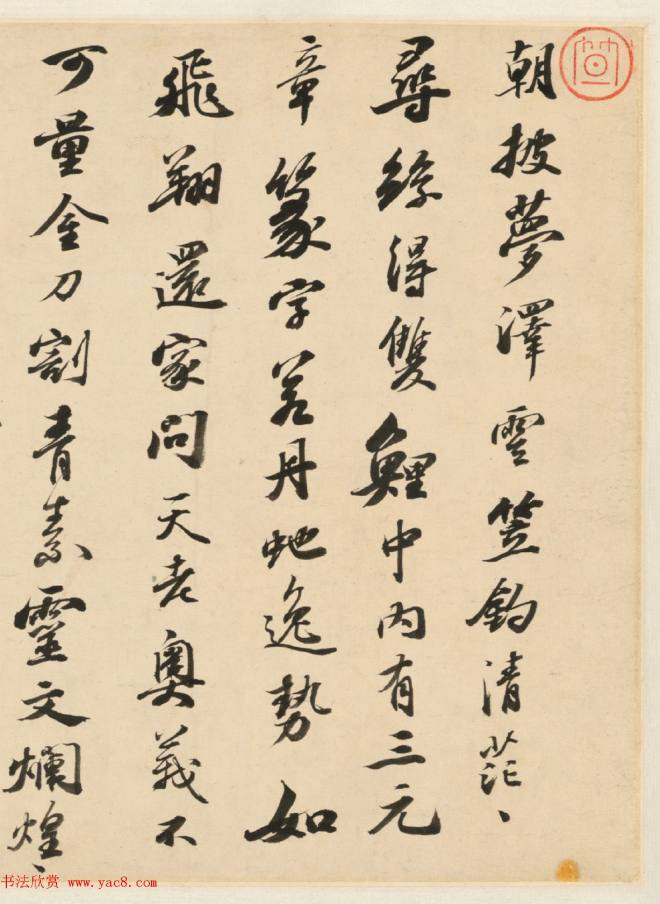 朝披夢澤雲笠釣清茫〻
尋絲得雙鯉中內有三元
章篆字若丹虵逸勢如
飛翔還家問天老奧義不
可量金刀割青素靈文爛煌〻
书法欣赏 www.yac8.com